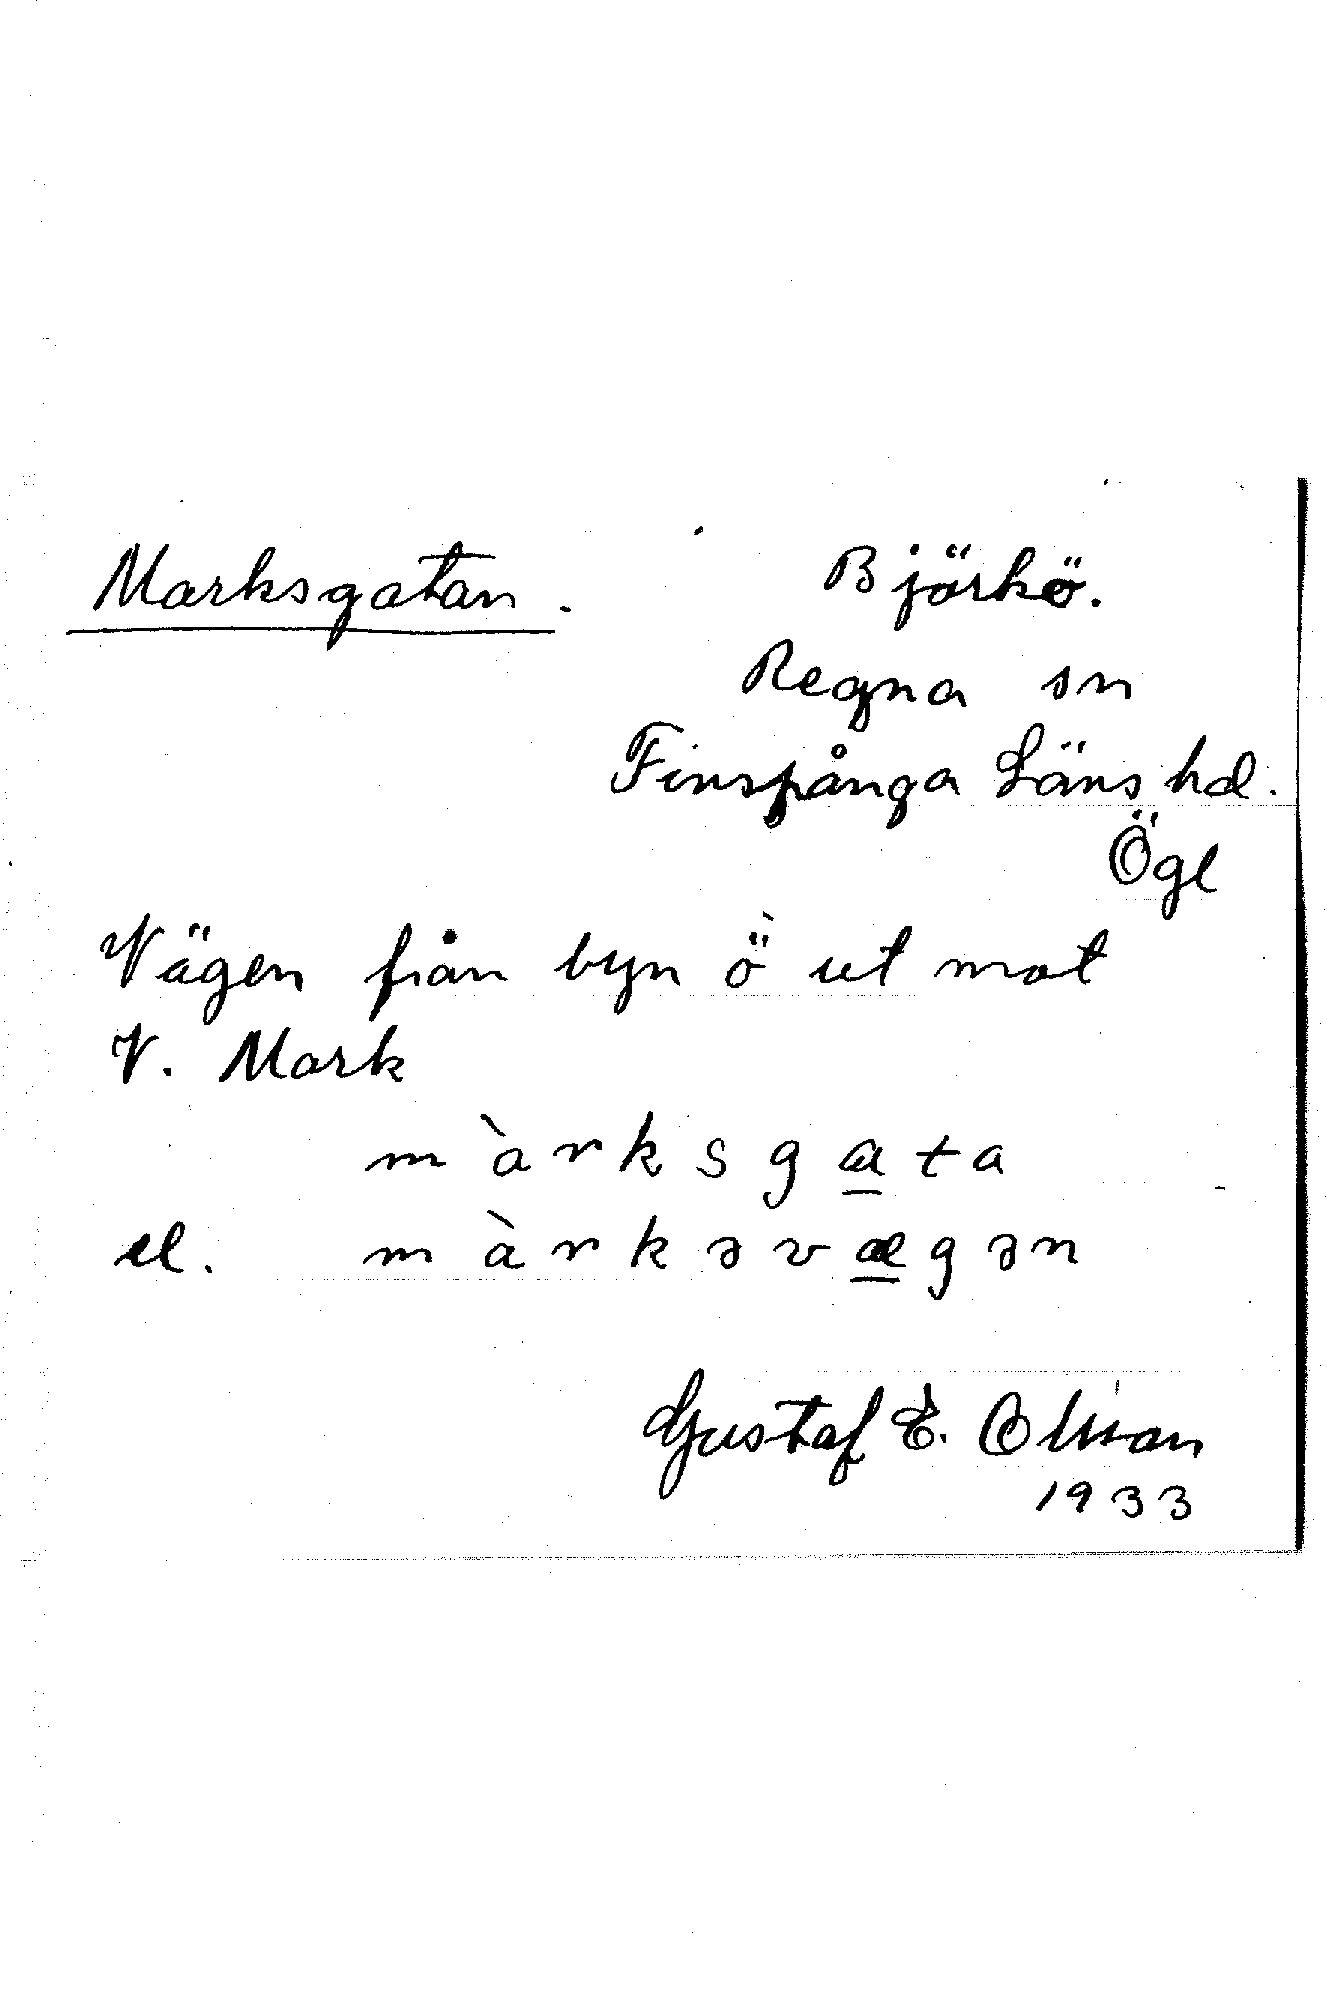 Marksgatan. Björkö.
Regna sn
Finspånga Läns hd.
Ögl
Vägen från byn ö ut mot
V. Mark
màrksga̲ta
el. màrkəvæ̲gən
Gustaf E. Olsson
1933